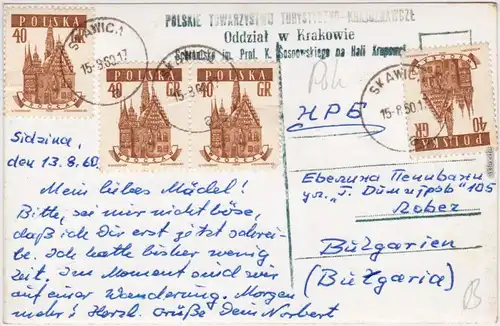 POLSKIE TOWARZYSTWO TURYSTYCZNO-KRAJOZNAWCZE
Oddział w Krakowie
im. Prof. K. Sosnowskiego na Hali Krupowej
40
POLSKA
SKAWICA
15-8.60.17
40
POLSKA
GR
POLSKA
40
GR
SKAWICA
15-8.60.17
40
GR
POLSKA
Sidzina,
den 13.8.60
Mein liebes Mädel!
Bitte, sei mir nicht böse,
daß ich Dir erst jetzt schrei-
be. Ich hatte bisher wenig
Zeit. Im Moment sind wir
auf einer Wanderung. Morgen
mehr! Herzl. Grüße Dein Norbert
НРБ
Евелина
ул. "Г. Димитров" 105
Ловеч
Bulgarien
(Bułgaria)